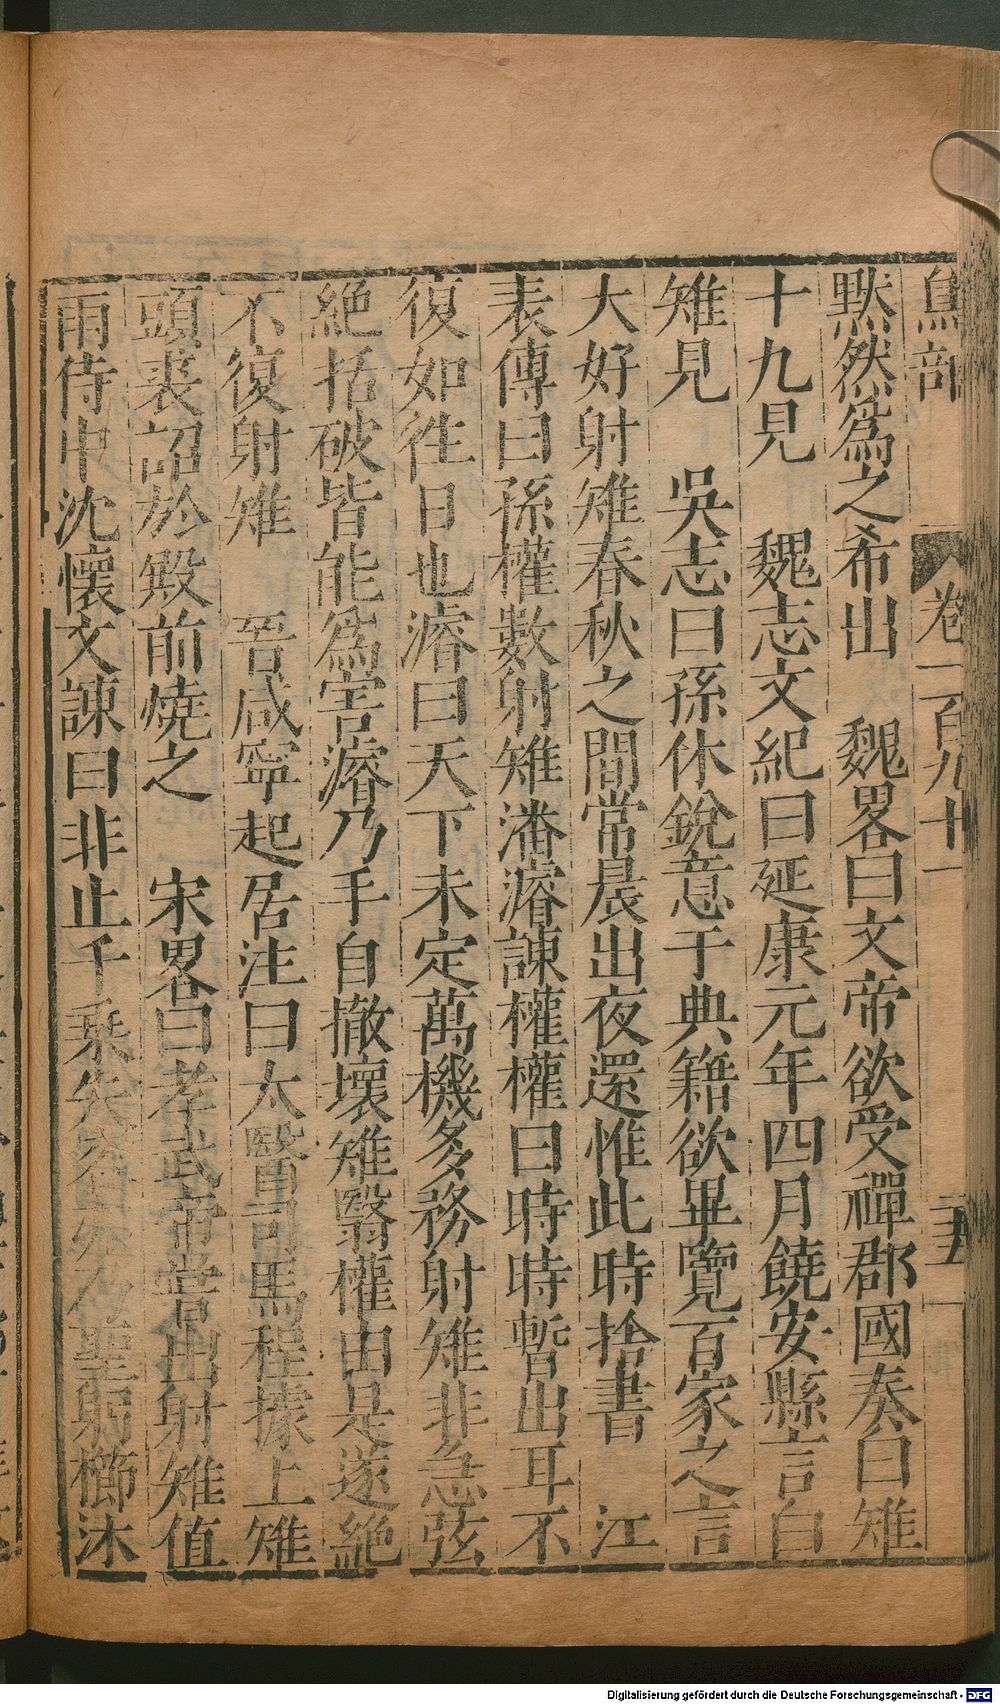 卷一百九十一
五
默然爲之希出　魏畧曰文帝欲受禪郡國奏曰雉
十九見　魏志文紀曰延康元年四月饒安縣言白
雉見　吳志曰孫休銳意于典籍欲畢覽百家之言
大好射雉春秋之間常晨出夜還惟此時捨書　江
表傳曰孫權數射雉潘濬諫權權曰時時暫出耳不
復如徃日也濬曰天下未定萬機多務射雉非急弦
絕括破皆能爲害濬乃手自撤壞雉翳權由是遂絕
不復射雉　晉咸寧起居注曰太醫司馬程據上雉
頭裘詔於殿前燒之　宋畧曰孝武帝嘗出射雉值
雨侍中沈懷文諫曰非止千乘失容亦乃聖躬櫛沐
Digitalisierung gefördert durch die Deutsche Forschungsgemeinschaft - DFG